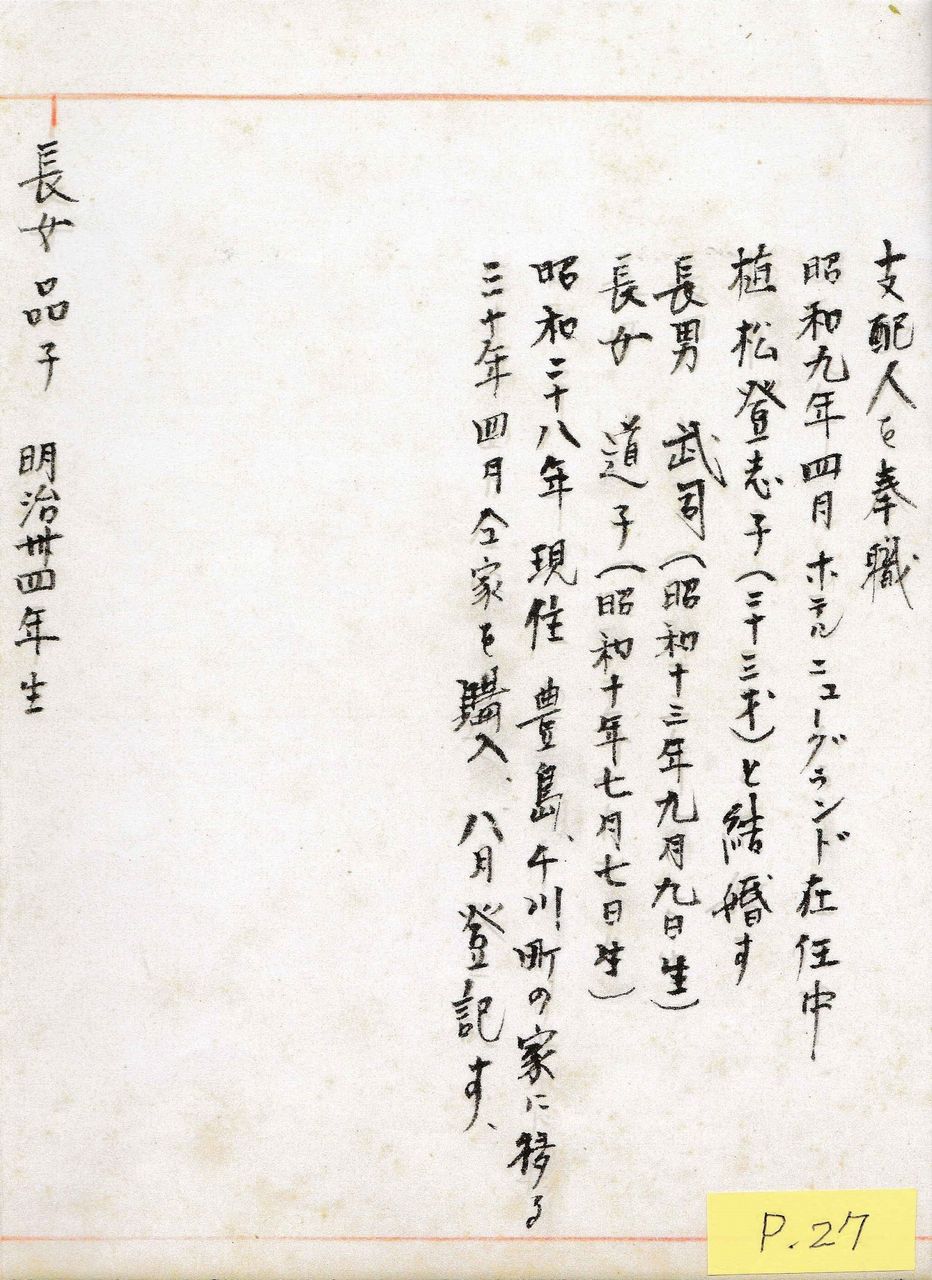 支配人を奉職
昭和九年四月ホテルニューグランド在任中
植松登志子(二十三才)と結婚す
長男 武司(昭和十三年九月九日生)
長女 道子(昭和十年七月七日生)
昭和二十八年 現住 豊島、千川町の家に移る
三十年四月仝家を購入、八月登記す、
長女品子 明治卅四年生
P.27